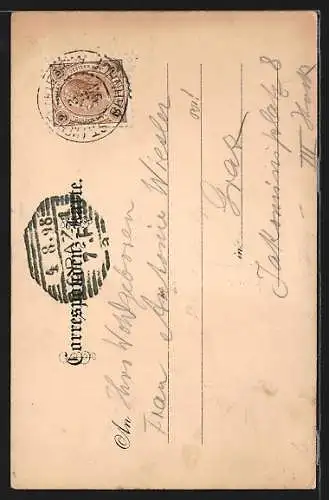 Correspondenz-Karte.
An Ihro Wohlgeboren
Frau Antonie Wiesler
in Graz
Jakominiplatz 8
III. Stock
4.8.98
GRAZ
7.F